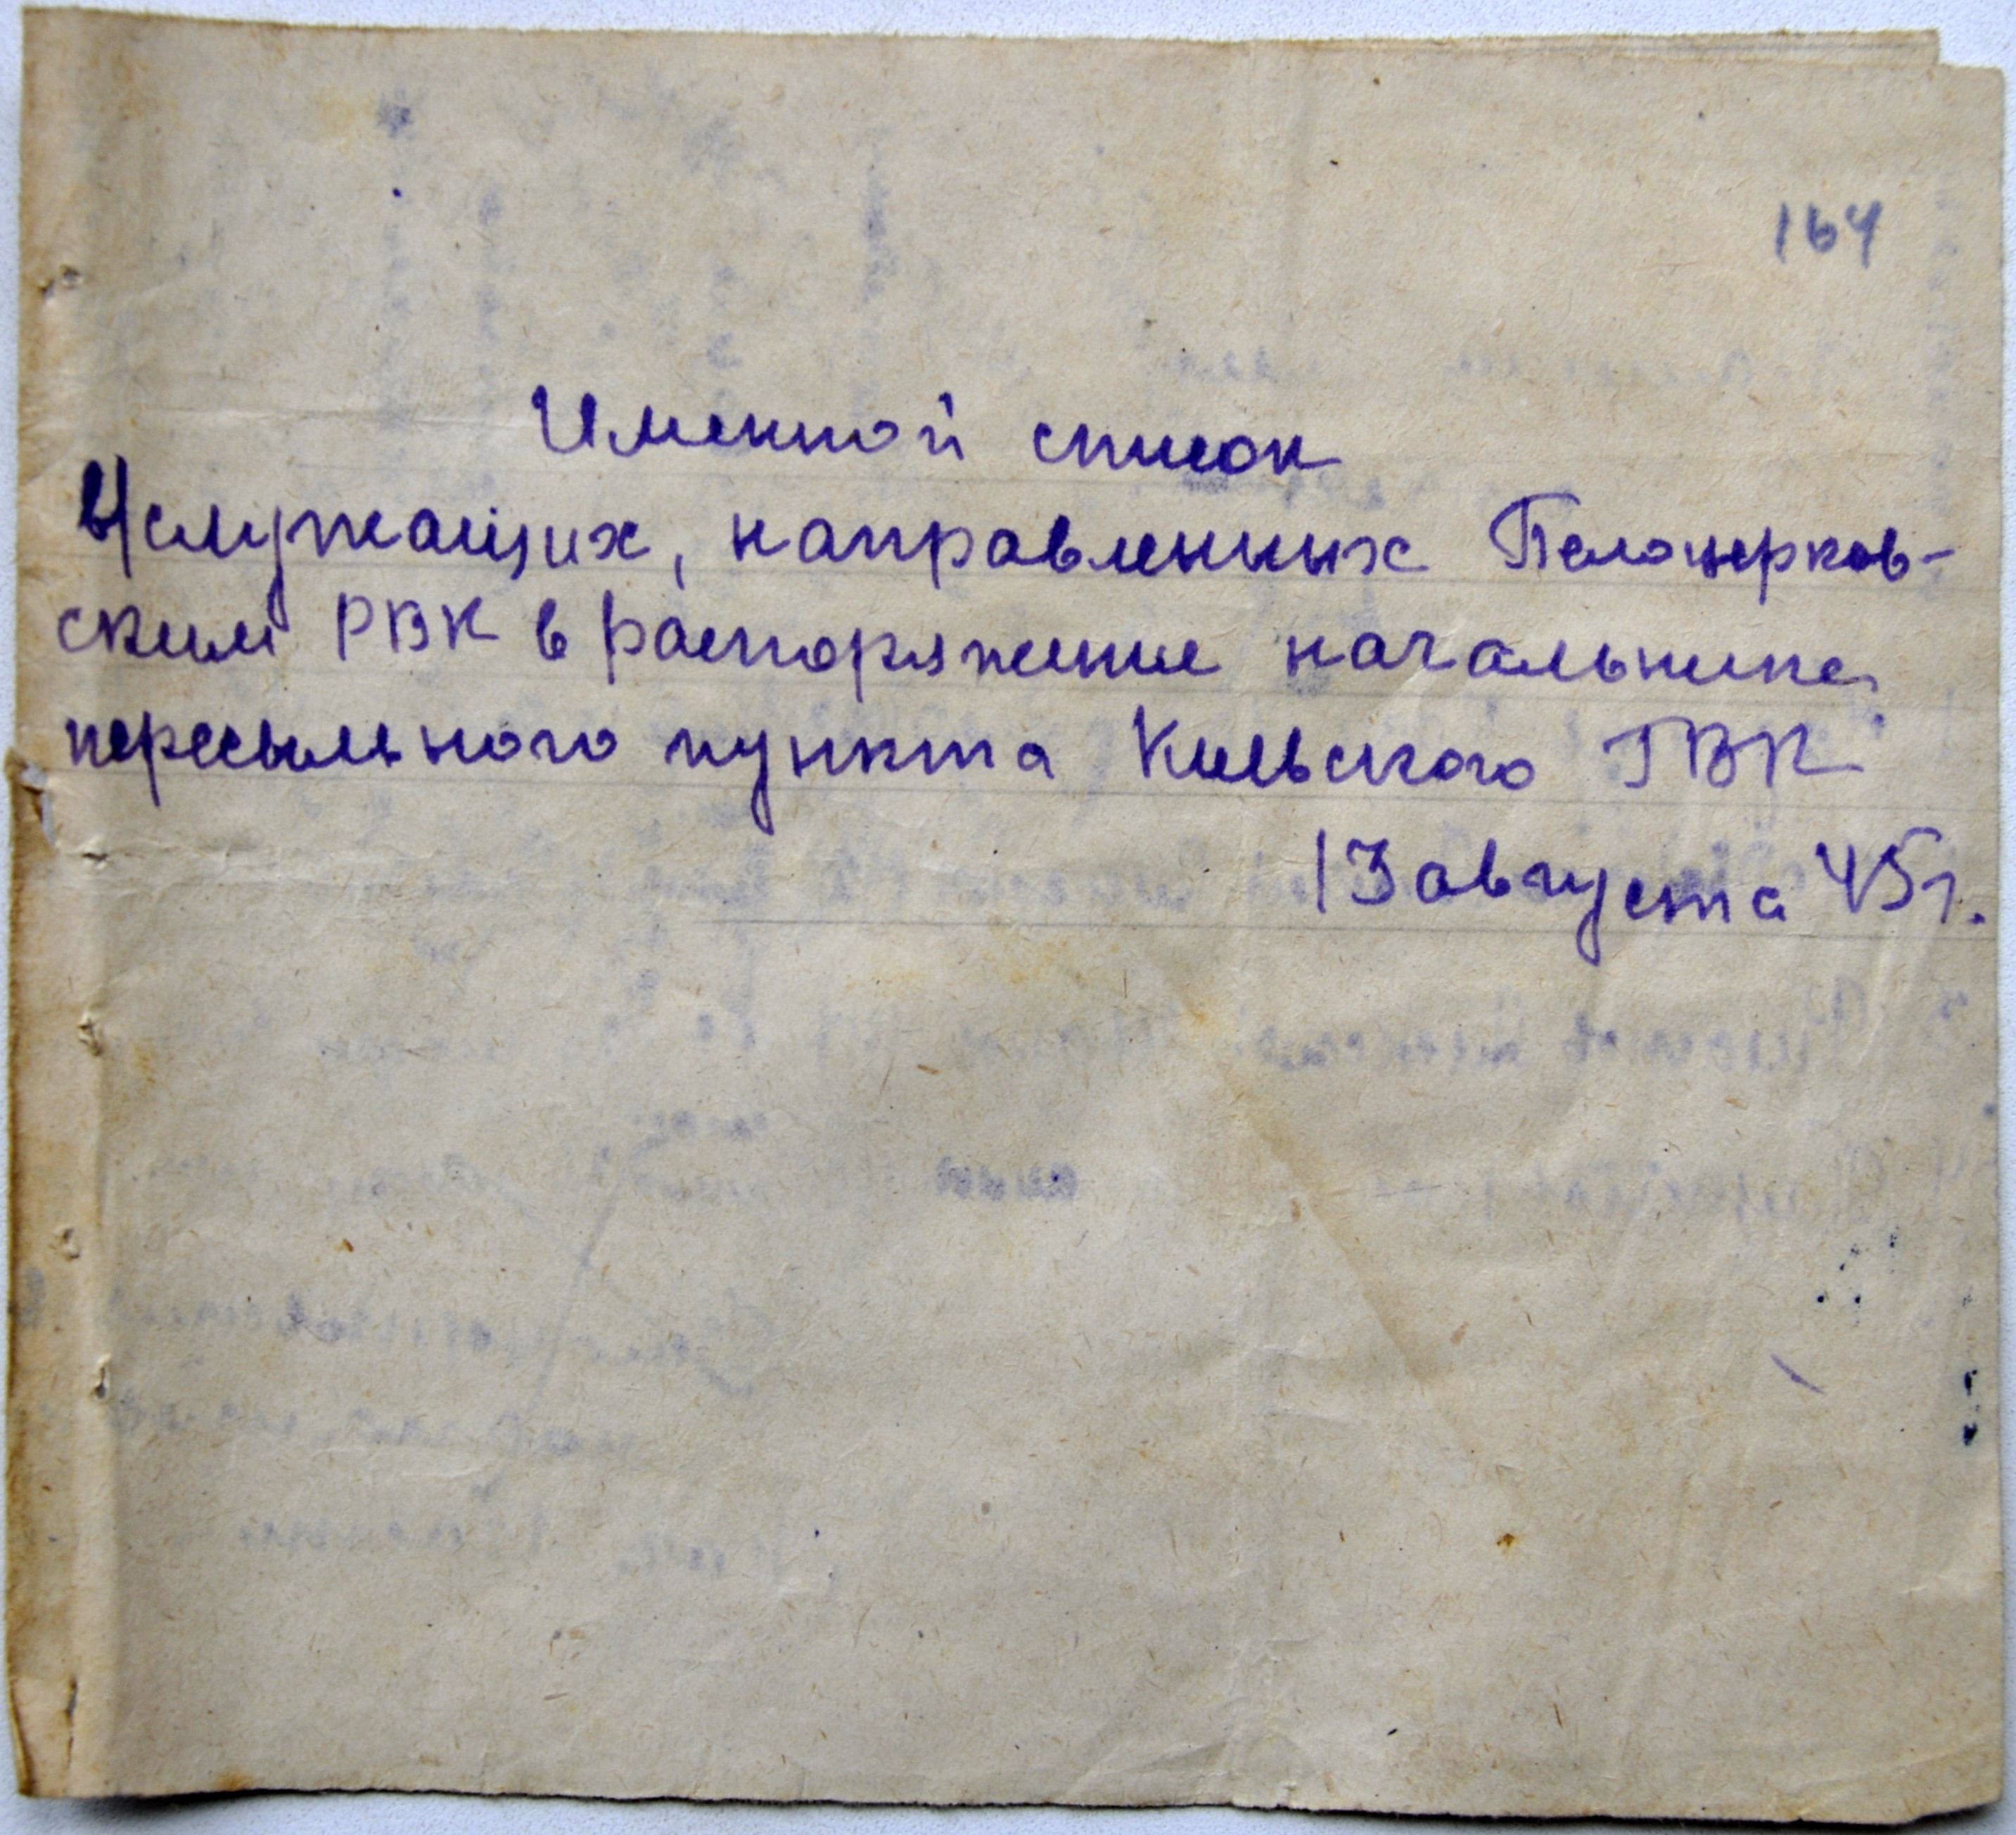 164
Именной список
в/служащих, направленных Белоцерков-
ским РВК в распоряжение начальника
пересыльного пункта Киевского ГВК
13 августа 45 г.